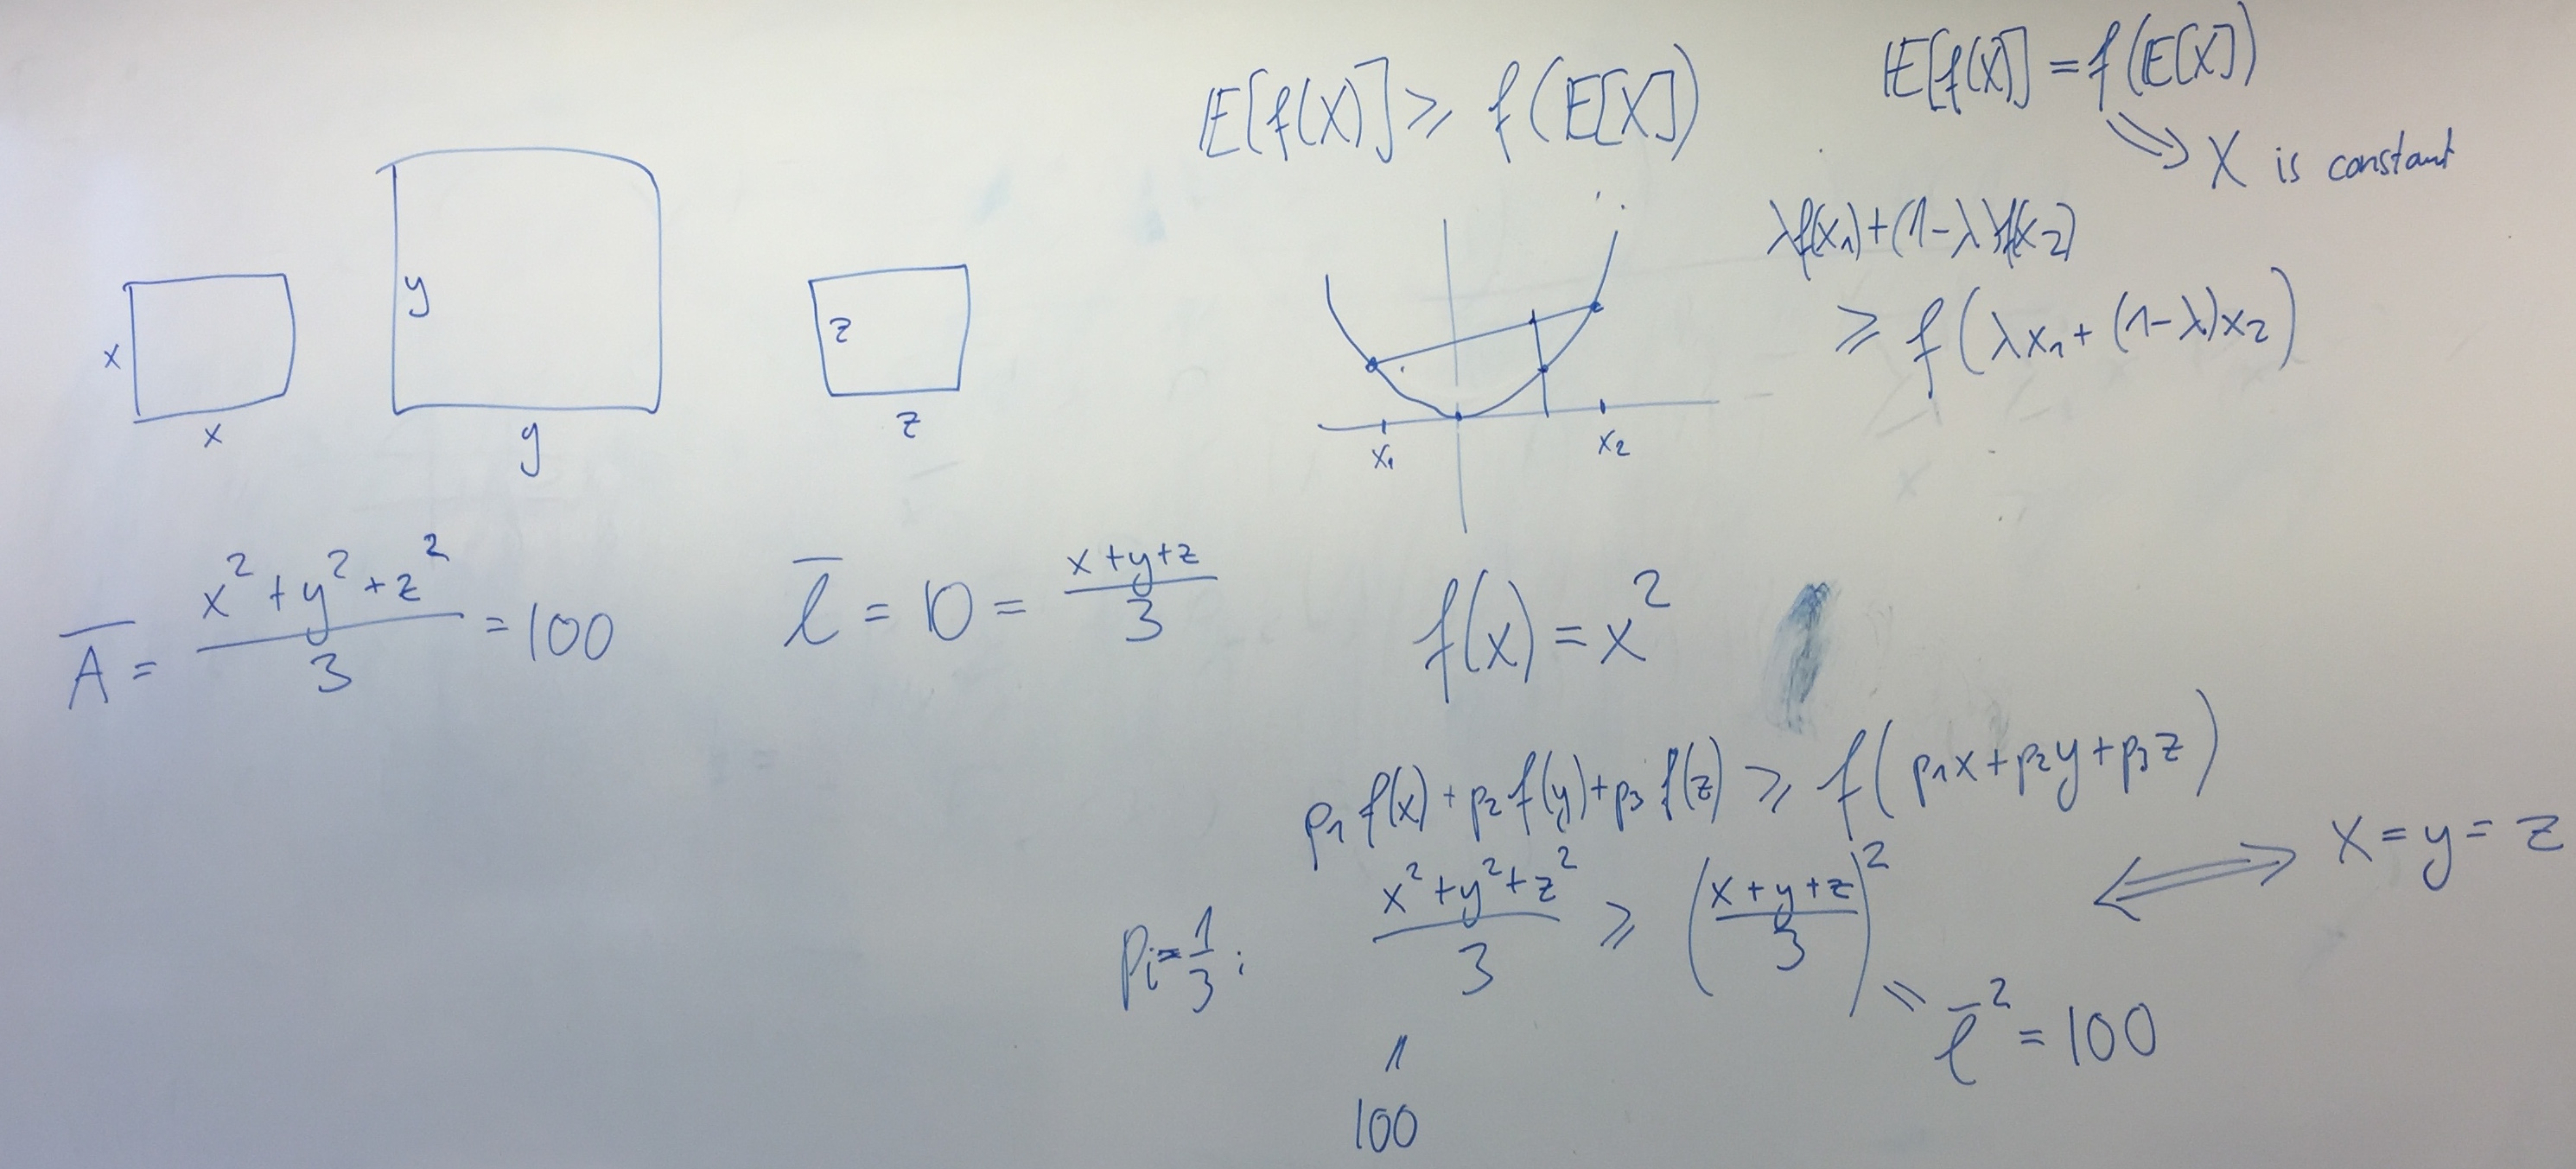 x
x
y
y
z
z
A̅ = (x² + y² + z²)/3 = 100
l̅ = 10 = (x + y + z)/3
E[f(X)] ⩾ f(E[X])
E[f(X)] = f(E[X])
⇒ X is constant
λf(x₁) + (1-λ)f(x₂)
⩾ f(λx₁ + (1-λ)x₂)
x₁
x₂
f(x) = x²
p₁ f(x) + p₂ f(y) + p₃ f(z) ⩾ f(p₁x + p₂y + p₃z)
pᵢ = 1/3 : (x² + y² + z²)/3 ⩾ ((x + y + z)/3)² ⟺ x = y = z
= l̅² = 100
=
100